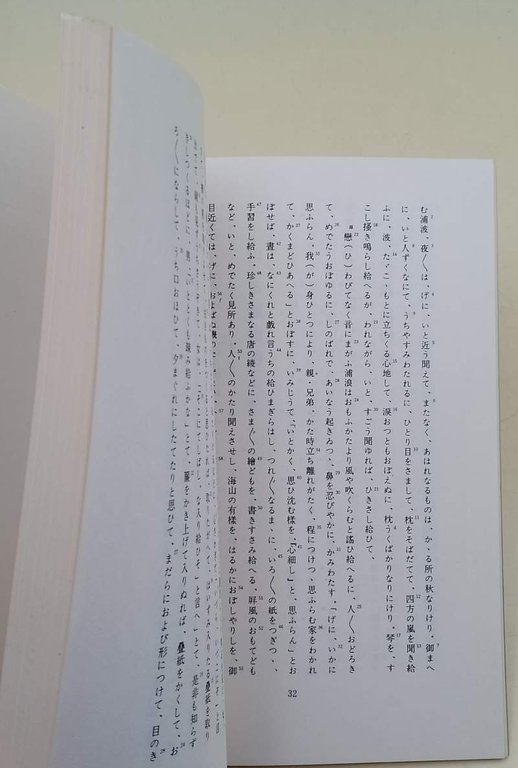 む浦波、夜〳〵は、げに、いと近う聞えて、またなく、あはれなるものは、かゝる所の秋なりけり。御まへ
に、いと人ずくなにて、うちやすみわたれるに、ひとり目をさまして、枕をそばだてて、四方の嵐を聞き給
ふに、波、たゞこゝもとに立ちくる心地して、涙おつともおぼえぬに、枕うくばかりなりにけり。琴を、す
こし搔き鳴らし給へるが、われながら、いと、すごう聞ゆれば、ひきさし給ひて、
戀(ひ)わびてなく音にまがふ浦浪はおもふかたより風や吹くらむ
と謠ひ給へるに、人〳〵おどろき
て、めでたうおぼゆるに、しのばれで、あいなう起きゐつゝ、鼻を忍びやかに、かみわたす。「げに、いかに
思ふらん。我(が)身ひとつにより、親・兄弟、かた時立ち離れがたく、程につけつゝ思ふらむ家をわかれ
て、かくまどひあへる」とおぼすに、いみじうて、「いとかく、思ひ沈む樣を、『心細し』と、思ふらん」とお
ぼせば、晝は、なにくれと戲れ言うちの給ひまぎらはし、つれ〴〵なるまゝに、いろ〳〵の紙をつぎつゝ、
手習をし給ふ。珍しきさまなる唐の綾などに、さま〴〵の繪どもを、書きすさみ給へる、屛風のおもてども
など、いと、めでたく見所あり。人〳〵のかたり聞えさせし、海山の有樣を、はるかにおぼしやりしを、御
目近くては、げに、およばぬ磯の
32
とくも疎み給ふかな」とて、簾をかき上げて入りぬれば、疊紙をかくして、お
ろ〳〵にならして、うち口おほひて、夕まぐれにしたてたりと思ひて、まだらにおよび形につけて、目のき